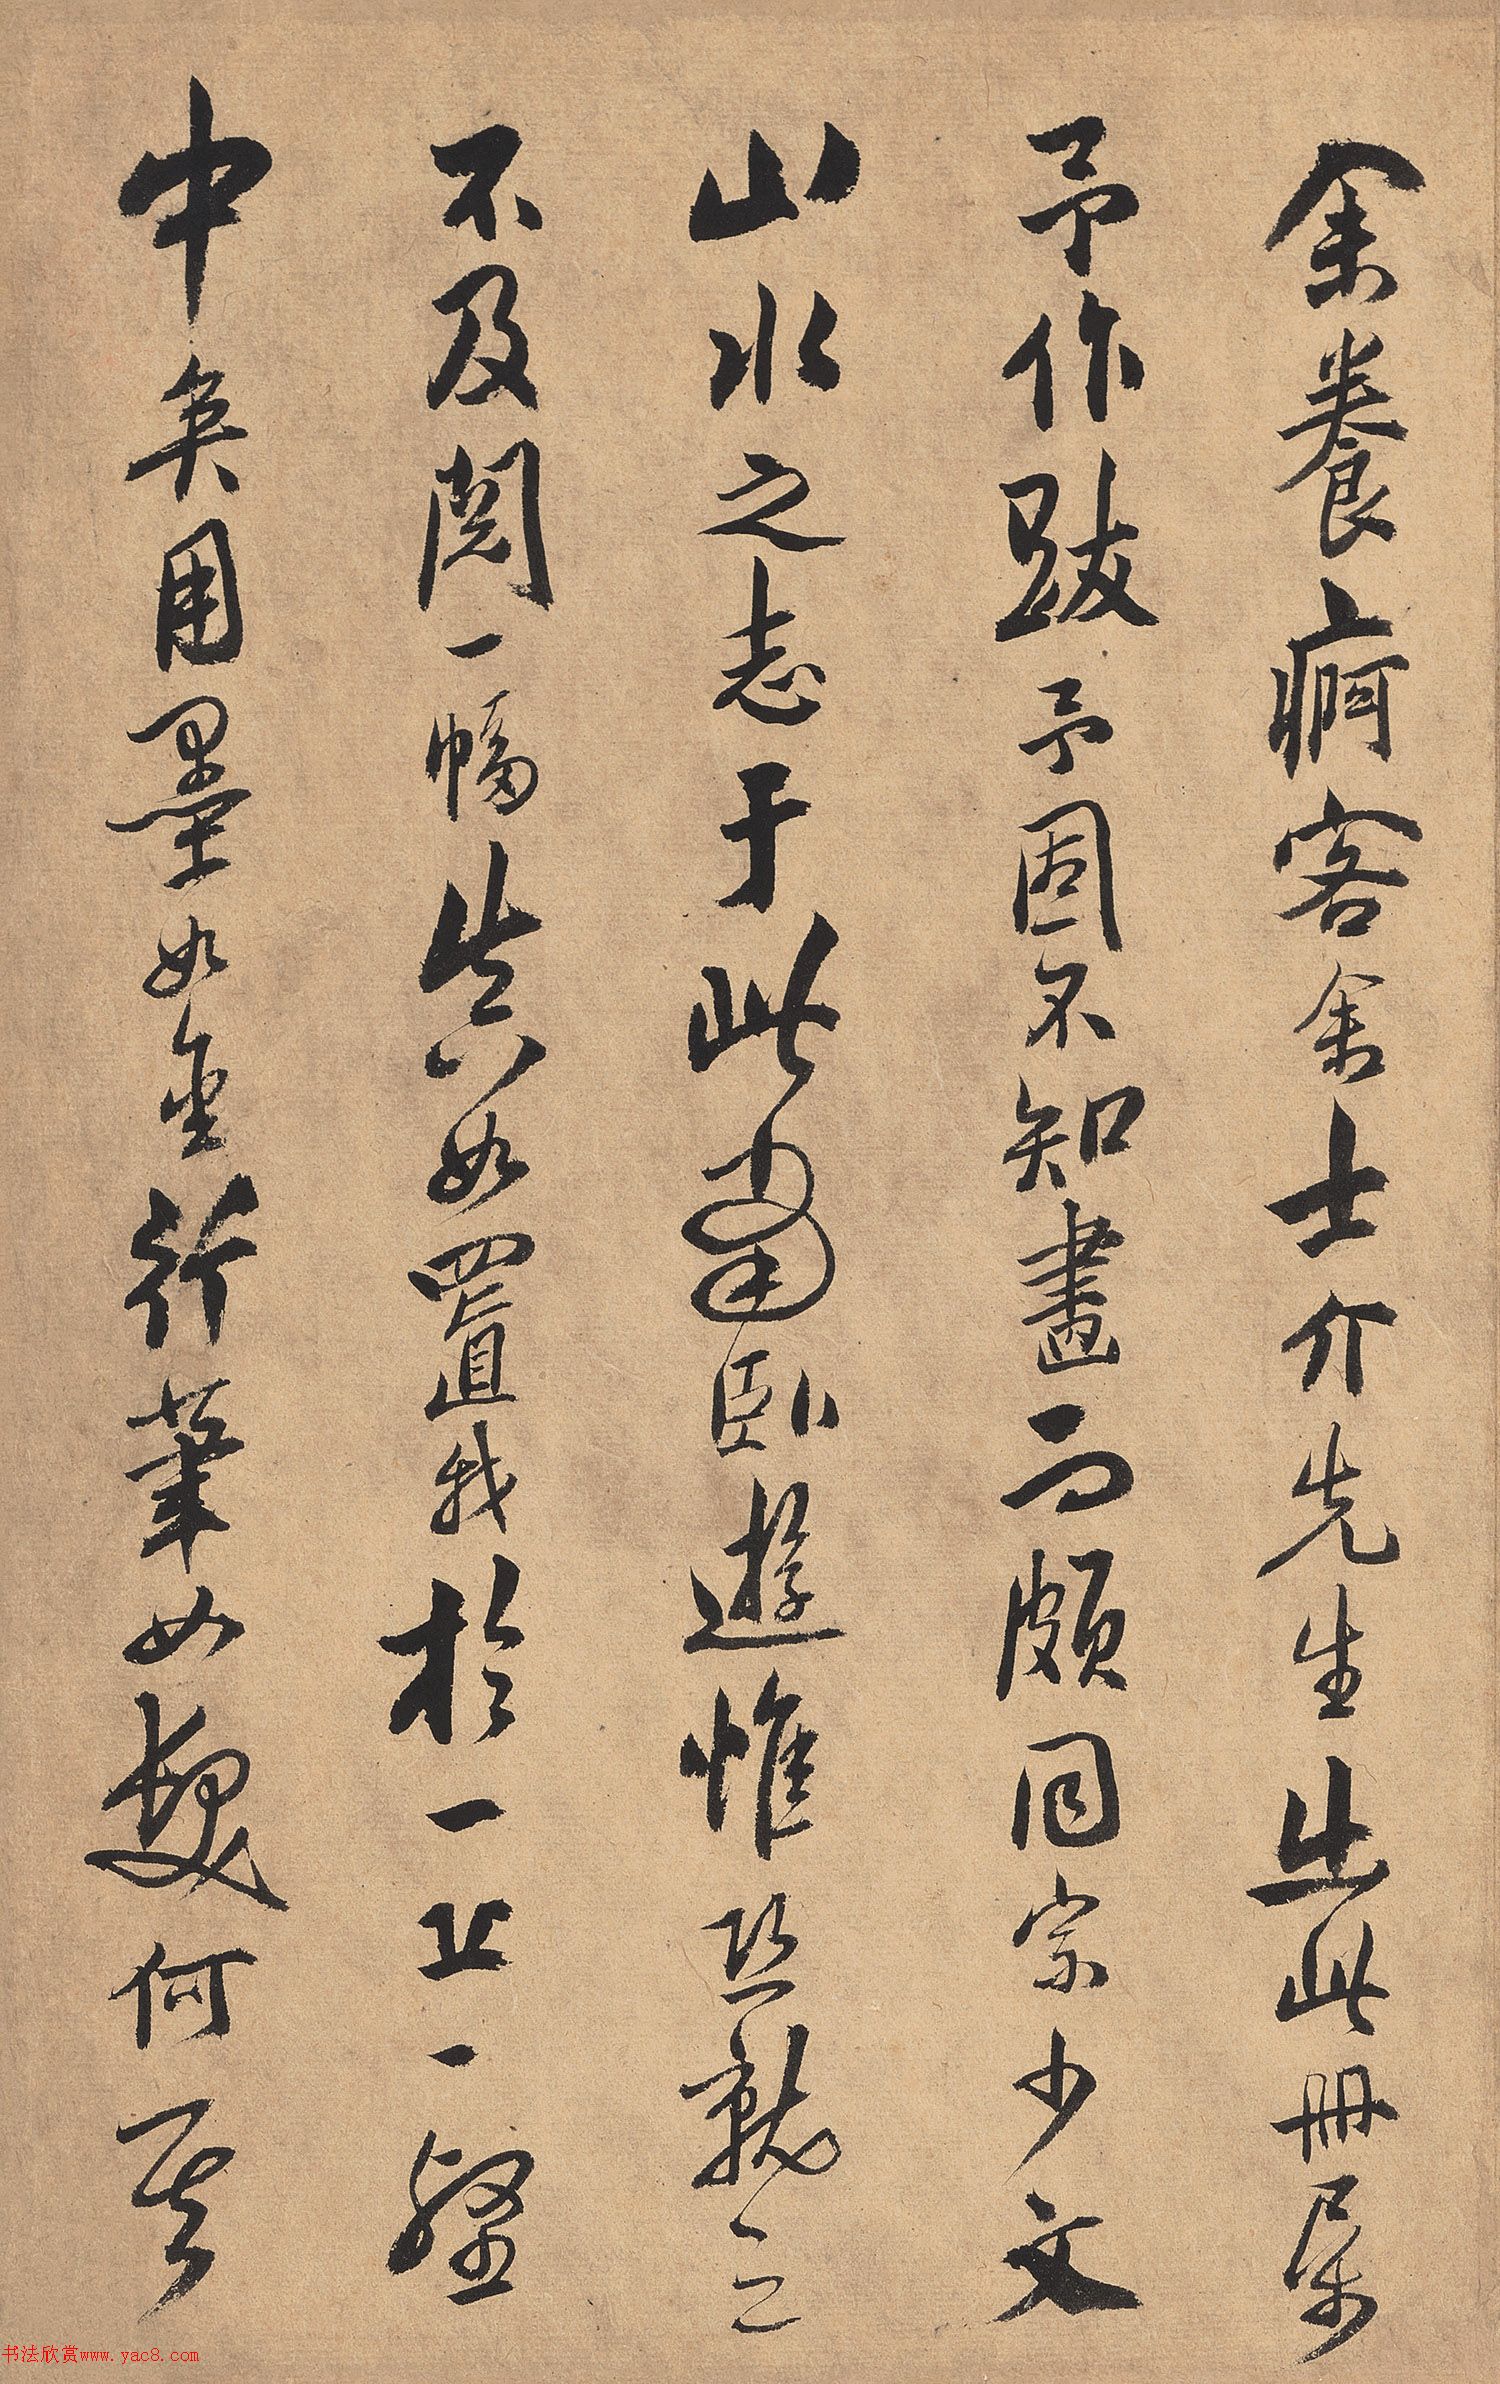 余養痾客舍士介先生出此冊屬
予作跋予固不知畫而頗同宗少文
山水之志于此當臥遊惟恐就之
不及閱一幅真如置我於一丘一壑
中矣用墨如金行筆如髮何其
书法欣赏www.yac8.com